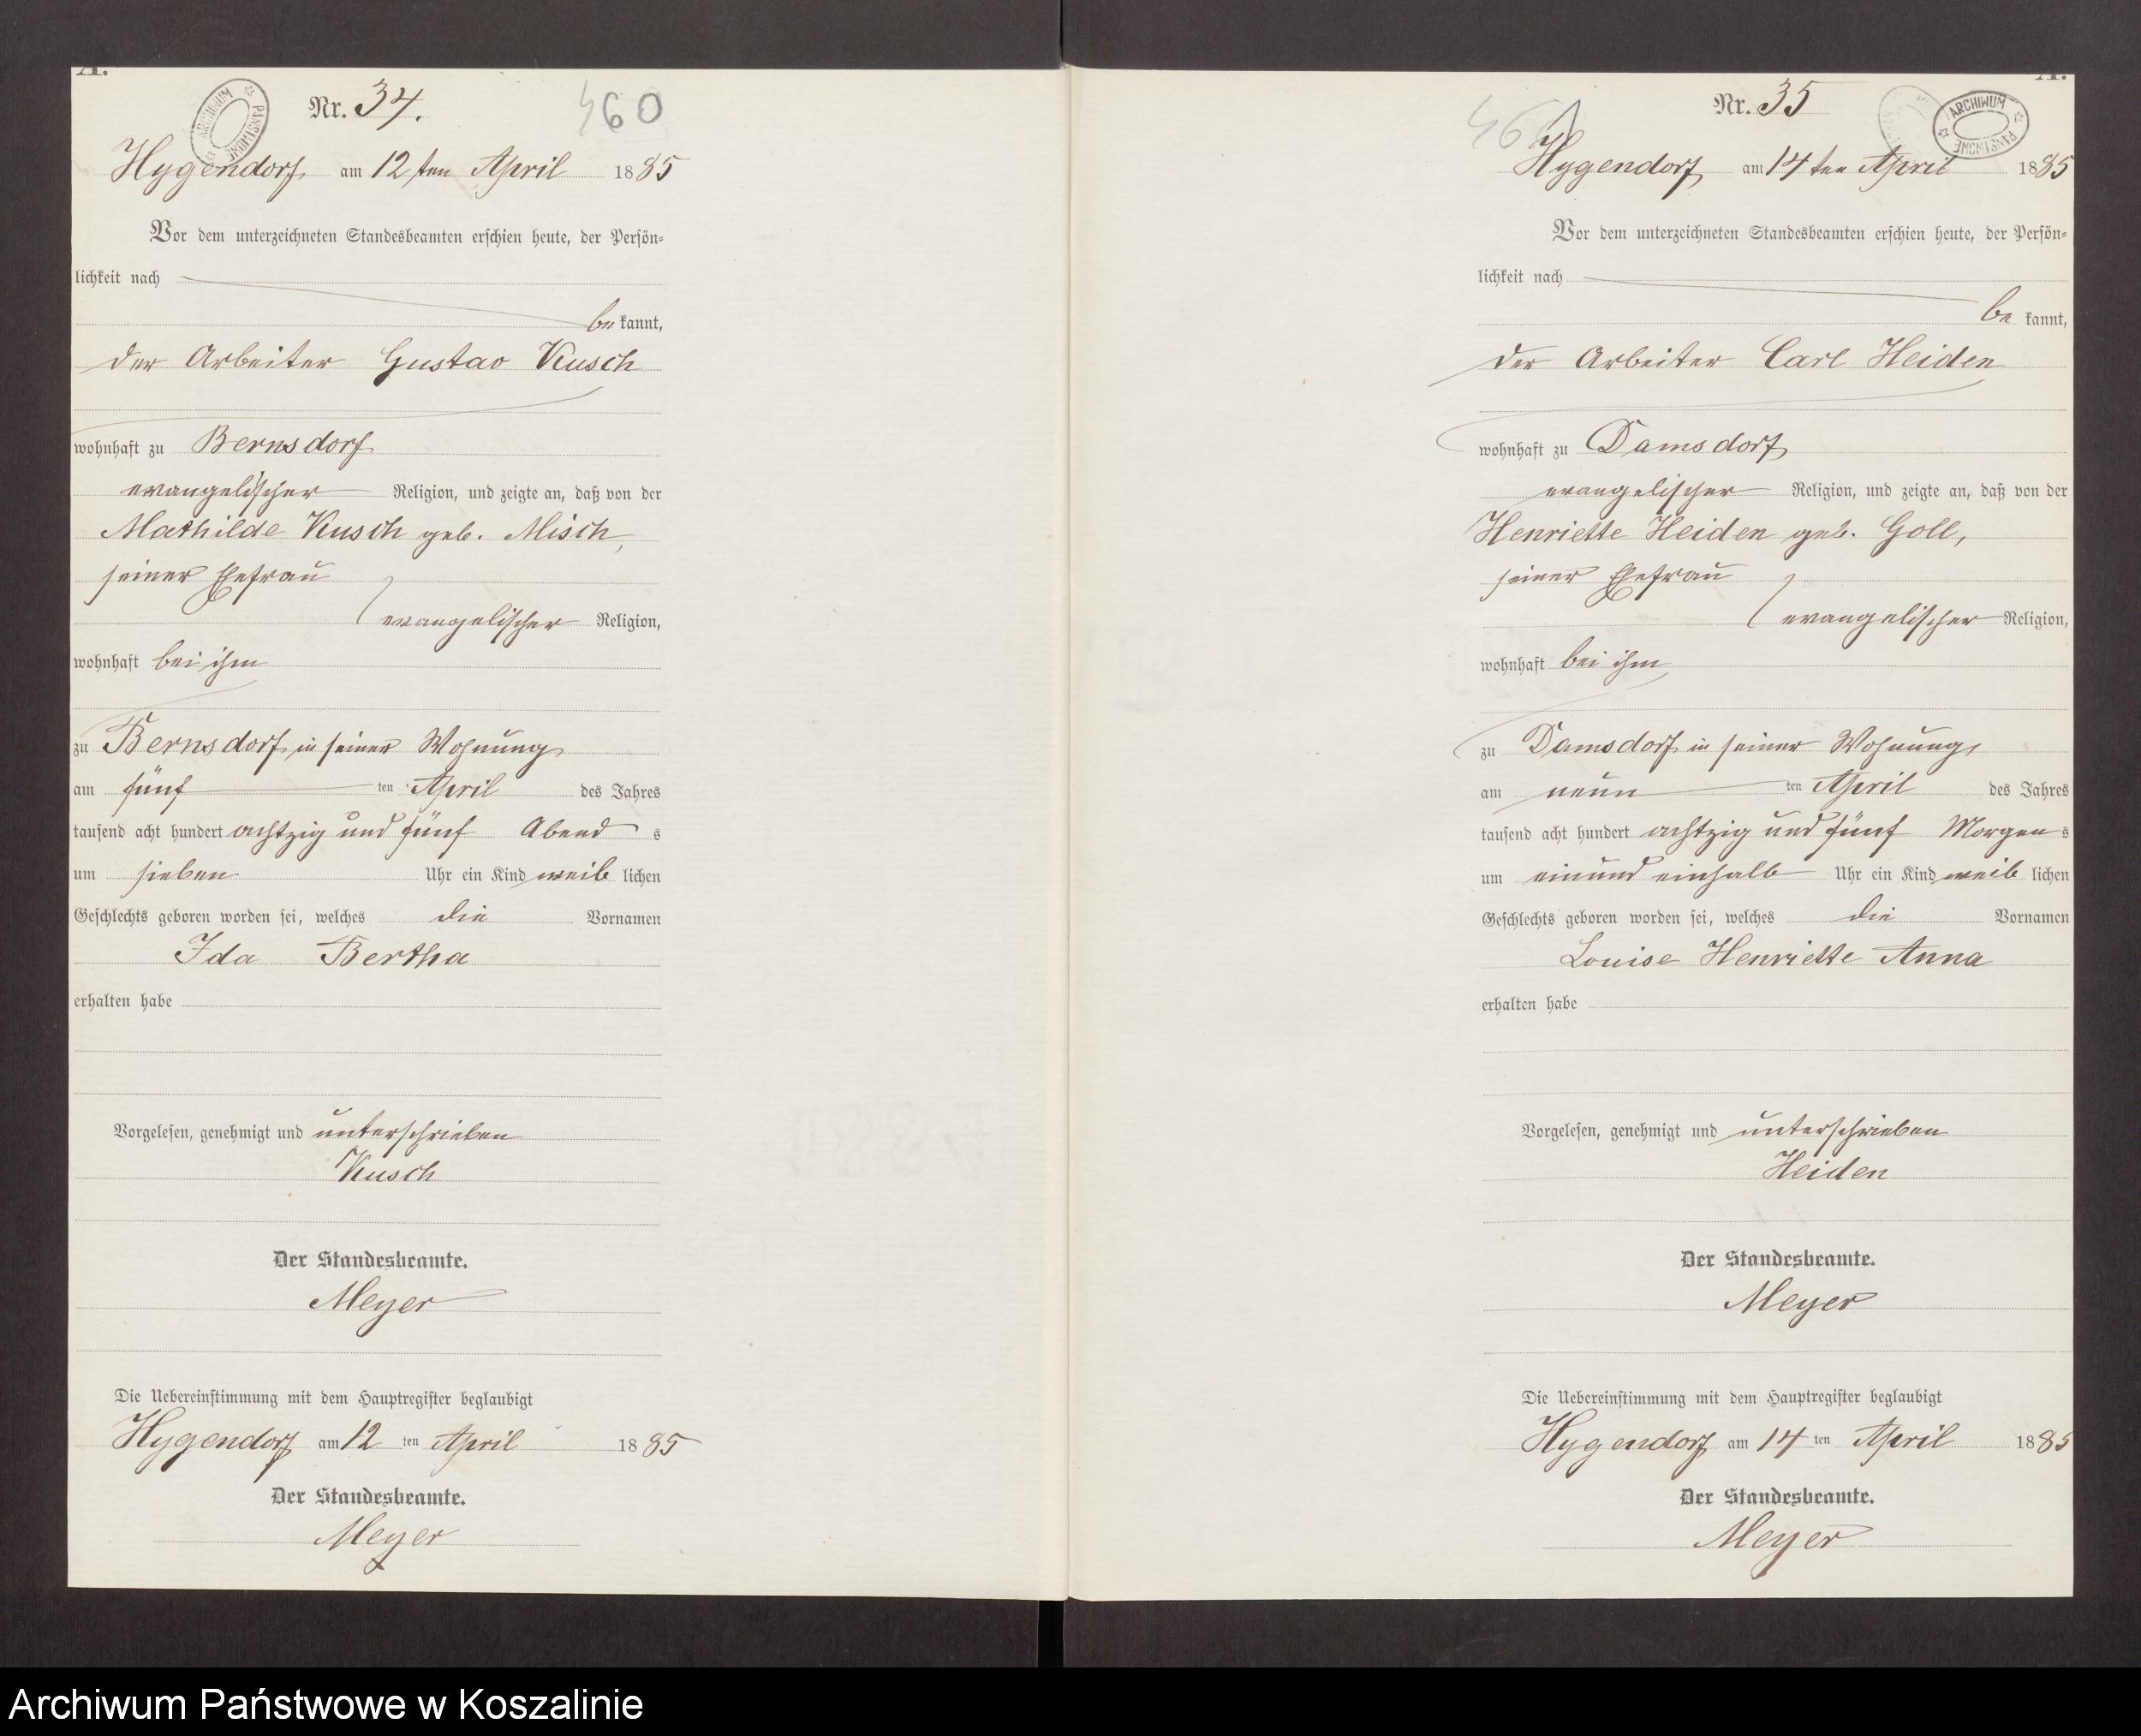 A.
Nr. 34.
460
ARCHIWUM PAŃSTWOWE
Hygendorf, am 12 ten April 1885
Vor dem unterzeichneten Standesbeamten erschien heute, der Persön-
lichkeit nach
be kannt,
der Arbeiter Gustav Kusch
wohnhaft zu Bernsdorf
evangelischer Religion, und zeigte an, daß von der
Mathilde Kusch geb. Misch,
seiner Ehefrau
evangelischer Religion,
wohnhaft bei ihm
zu Bernsdorf in seiner Wohnung,
am fünf ten April des Jahres
tausend acht hundert achtzig und fünf Abend s
um sieben Uhr ein Kind weib lichen
Geschlechts geboren worden sei, welches die Vornamen
Ida Bertha
erhalten habe
Vorgelesen, genehmigt und unterschrieben
Kusch
Der Standesbeamte.
Meyer
Die Uebereinstimmung mit dem Hauptregister beglaubigt
Hygendorf am 12 ten April 1885
Der Standesbeamte.
Meyer
A.
Nr. 35
ARCHIWUM PAŃSTWOWE
Hygendorf, am 14 ten April 1885
Vor dem unterzeichneten Standesbeamten erschien heute, der Persön-
lichkeit nach
be kannt,
der Arbeiter Carl Heiden
wohnhaft zu Damsdorf,
evangelischer Religion, und zeigte an, daß von der
Henriette Heiden geb. Goll,
seiner Ehefrau
evangelischer Religion,
wohnhaft bei ihm
zu Damsdorf in seiner Wohnung,
am neun ten April des Jahres
tausend acht hundert achtzig und fünf Morgen s
um einund einhalb Uhr ein Kind weib lichen
Geschlechts geboren worden sei, welches die Vornamen
Louise Henriette Anna
erhalten habe
Vorgelesen, genehmigt und unterschrieben
Heiden
Der Standesbeamte.
Meyer
Die Uebereinstimmung mit dem Hauptregister beglaubigt
Hygendorf am 14 ten April 1885
Der Standesbeamte.
Meyer
Archiwum Państwowe w Koszalinie